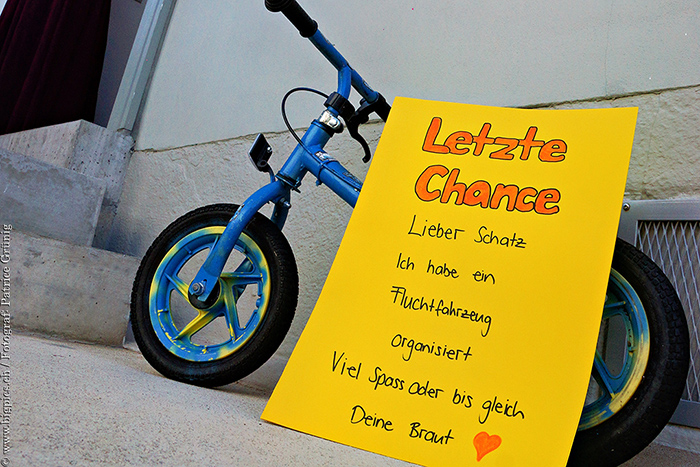 Letzte
Chance
Lieber Schatz
Ich habe ein
Fluchtfahrzeug
organisiert
Viel Spass oder bis gleich
Deine Braut
© www.bigpics.ch / Fotograf Patrice Grünig